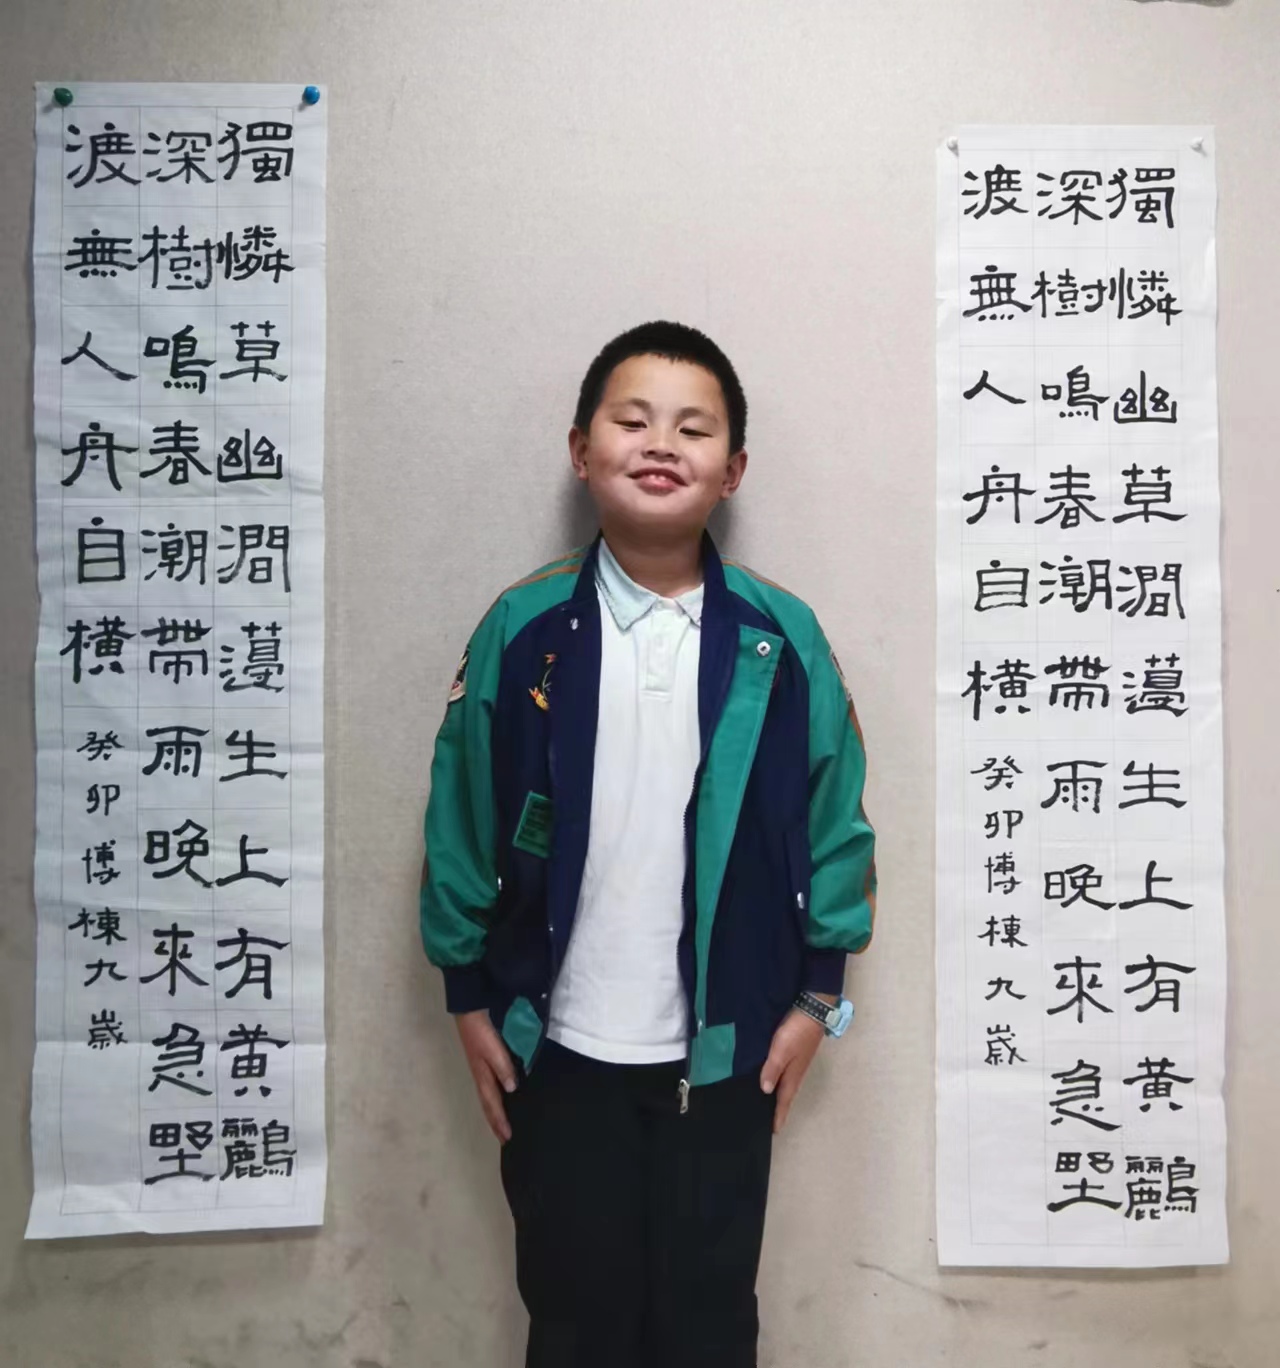 獨憐草幽澗薖生上有黃鸝
深樹鳴春潮帶雨晚來急野
渡無人舟自橫
癸卯博棟九歲
獨憐幽草澗薖生上有黃鸝
深樹鳴春潮帶雨晚來急野
渡無人舟自橫
癸卯博棟九歲